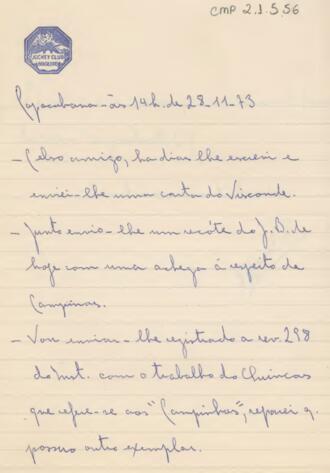 CMP 2.1.5.56
JOCKEY CLUB
BRASILEIRO
Copacabana - às 14 h. de 28-11-73
- Celso amigo, ha dias lhe escrevi e
enviei-lhe uma carta do Visconde.
- Junto envio-lhe um recóte do J. B. de
hoje com uma achega á respeito de
Campinas.
- Vou enviar-lhe registrado a rev. 298
do Inst. com o trabalho do Chuincas
que refere-se aos "Campinhos", reparei q.
possuo outro exemplar.